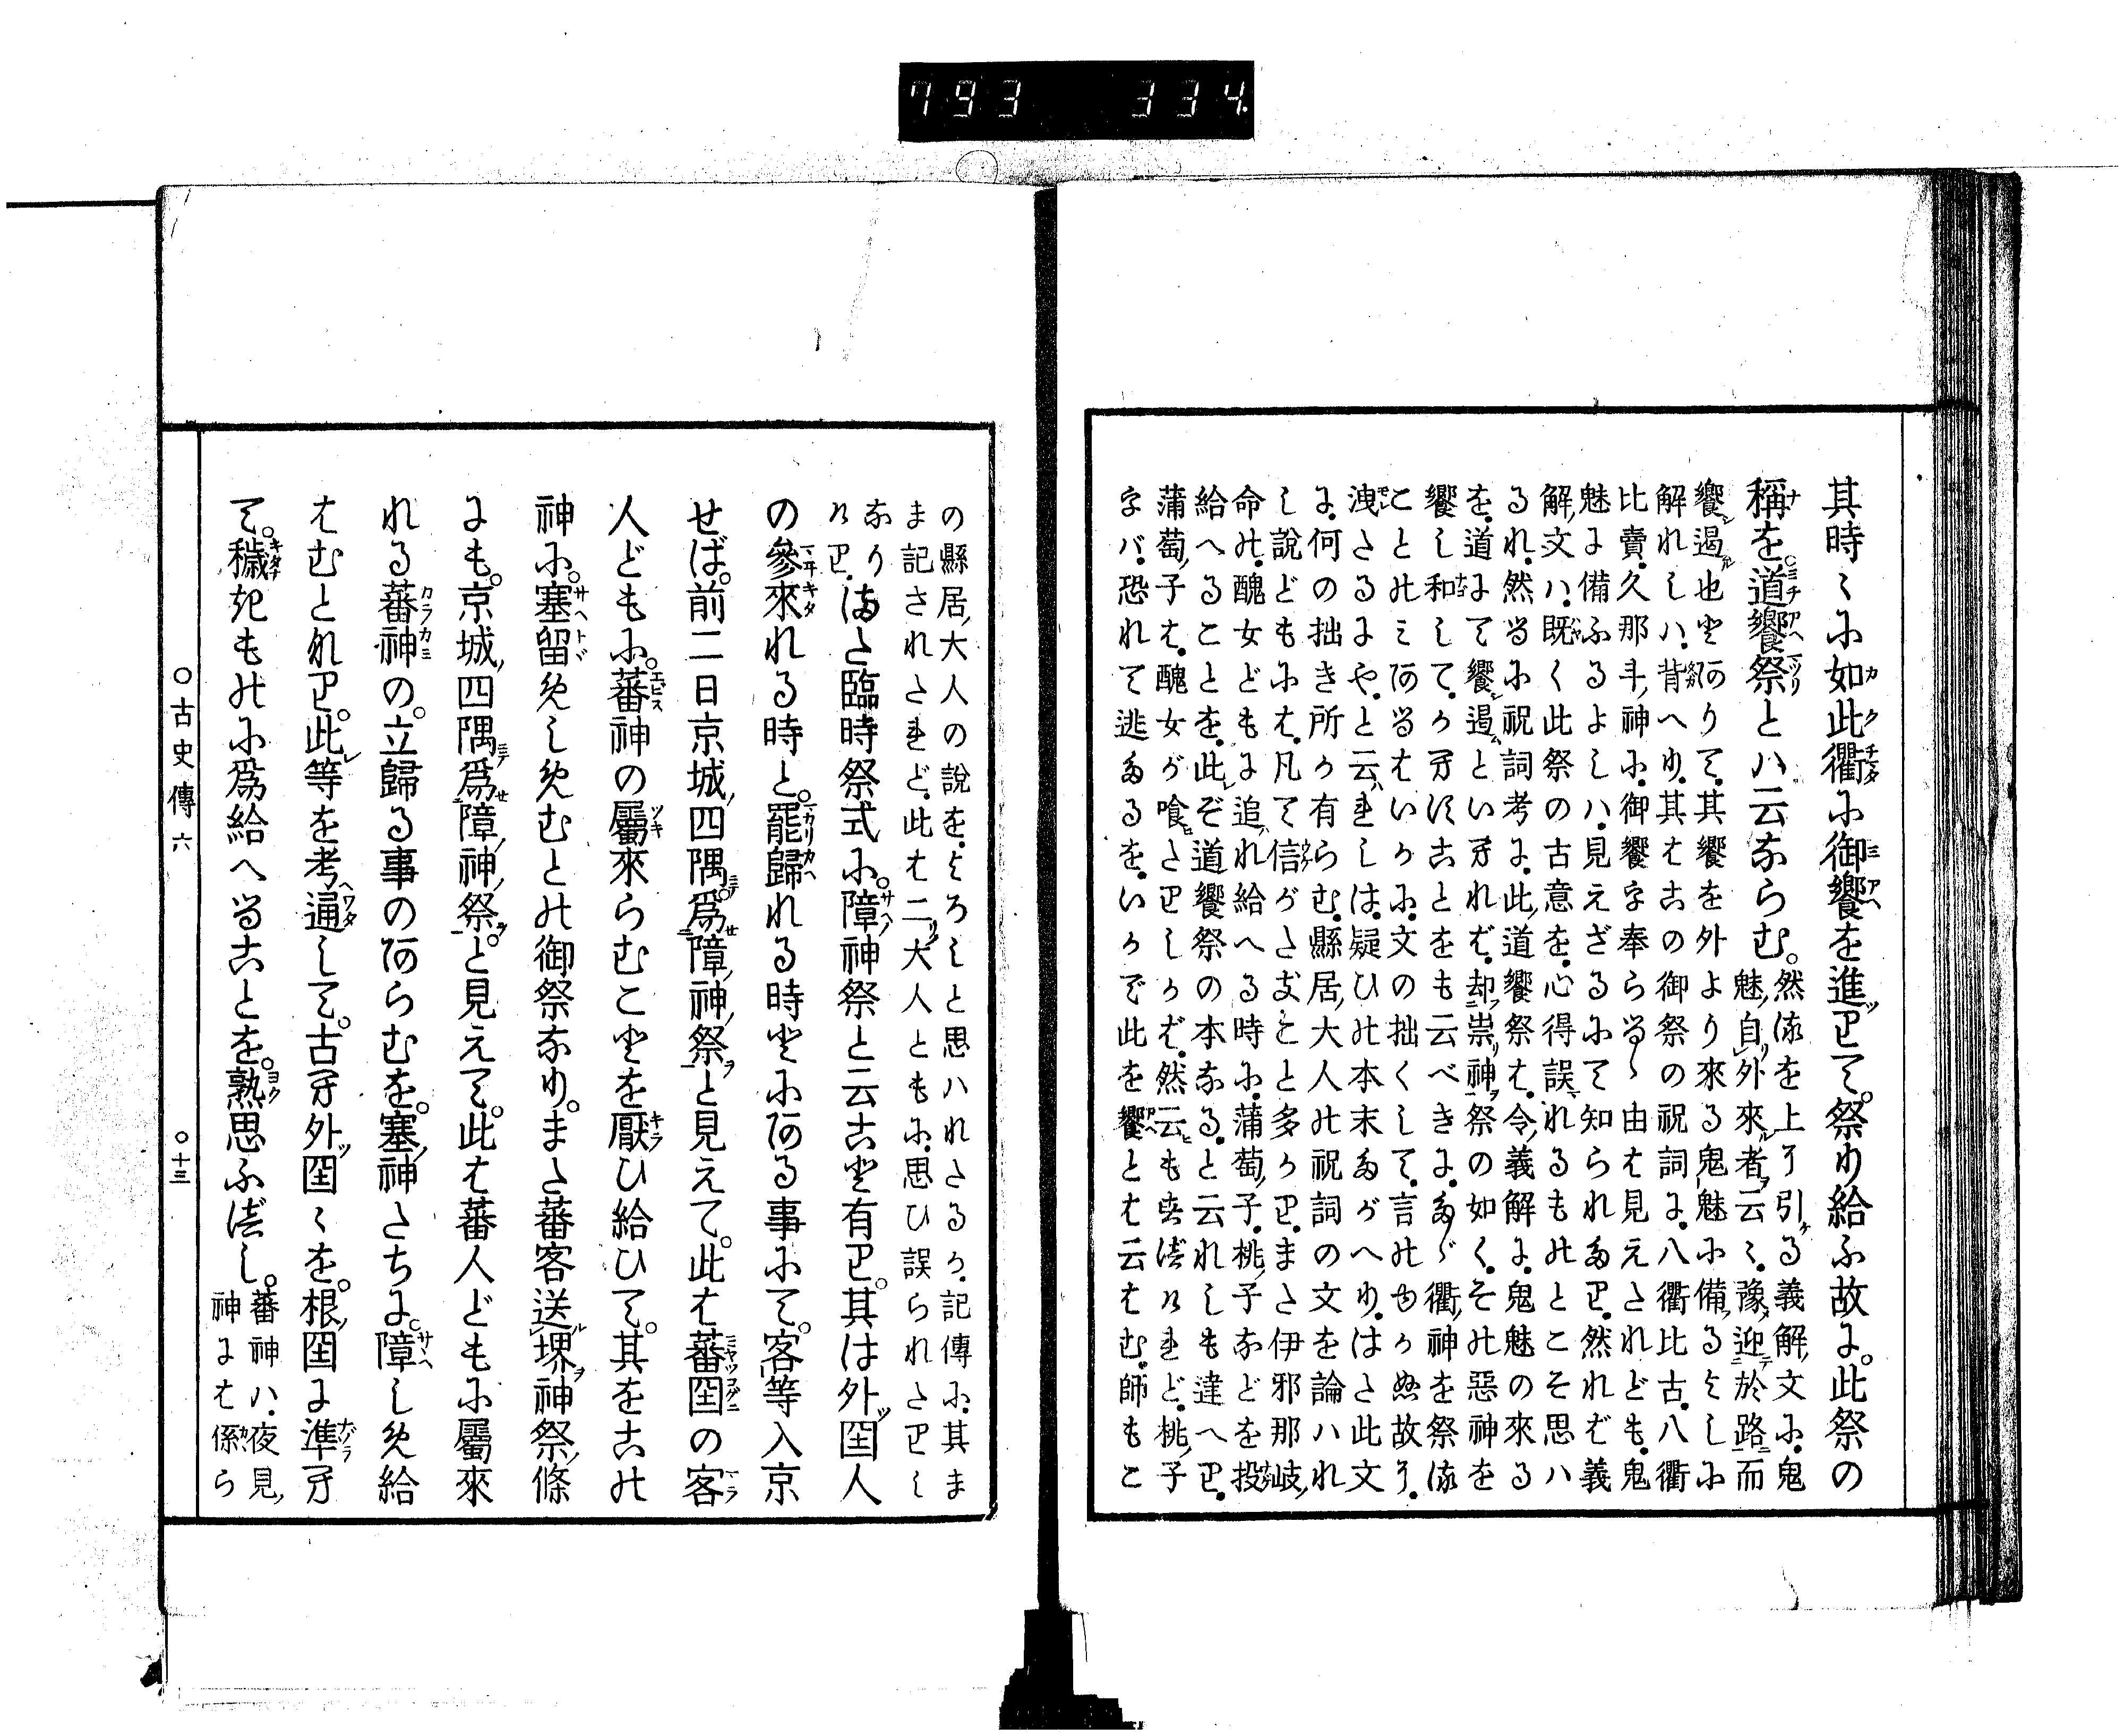 793 334
其時〻に如此衢に御饗を進りて。祭り給ふ故に。此祭の
稱を。道饗祭とハ云ならむ。
然るを上に引る義解ノ文に。鬼
魅自外來者云〻。豫迎於路而
饗遏也とありて。其饗を外より來る鬼魅に備るよしに
解れしハ。背へり。其はこの御祭の祝詞に。八衢比古。八衢
比賣。久那斗ノ神に。御饗字奉らるゝ由は見えされども。鬼
魅に備ふるよしハ。見えざるにて知られたり。然れば義
解ノ文ハ。既く此祭の古意を。心得誤れるものとこそ思ハ
るれ。然るに祝詞考に。此道饗祭は。令義解に。鬼魅の來る
を。道にて饗遏といすれば。却祟神祭の如く。その惡神を
饗し和して。かすにことをも云べきに。たゞ衢神を祭る
ことのミあるはいかに。文の拙くして。言のゆかぬ故か。
洩さるにや。と云れしは。疑ひの本末たがへり。はた此文
よ。何の拙き所か有らむ。縣居ノ大人の祝詞の文を論ハれ
し説どもには。凡て信がたきこと多かり。また伊邪那岐ノ
命の。醜女どもに追れ給へる時に。蒲萄ノ子。桃ノ子などを投
給へることを。此ぞ道饗祭の本なる。と云れしも違へり。
蒲萄ノ子は。醜女が喰たりしかば。然云も爲べけれど。桃ノ子
字バ。恐れて逃たるを。いかで此を饗とは云はむ。師もこ
の縣居ノ大人の説を。よろしと思ハれたるか。記傳に。其ま
ま記されたれど。此は二大人ともに。思ひ誤られたりし
なり
けり。
また臨時祭式に。障神祭と云こと有り。其は外國人
の參來れる時と。罷歸れる時とにある事にて。客等入京
せば。前二日京城ノ四隅爲障ノ神ノ祭と見えて。此は蕃國の客
人どもに。蕃神の屬來らむことを厭ひ給ひて。其をこの
神に。塞留めしめむとの御祭なり。また蕃客送堺神祭ノ條
にも。京城ノ四隅爲障ノ神ノ祭。と見えて。此は蕃人どもに屬來
れる蕃神の。立歸る事のあらむを。塞ノ神たちに障しめ給
はむとなり。此等を考通して。古へ外國〻を。根ノ國に準へ
て。穢きものに爲給へることを。熟思ふべし。
蕃神ハ。夜見ノ
神には係ら
○古史傳六
○十三